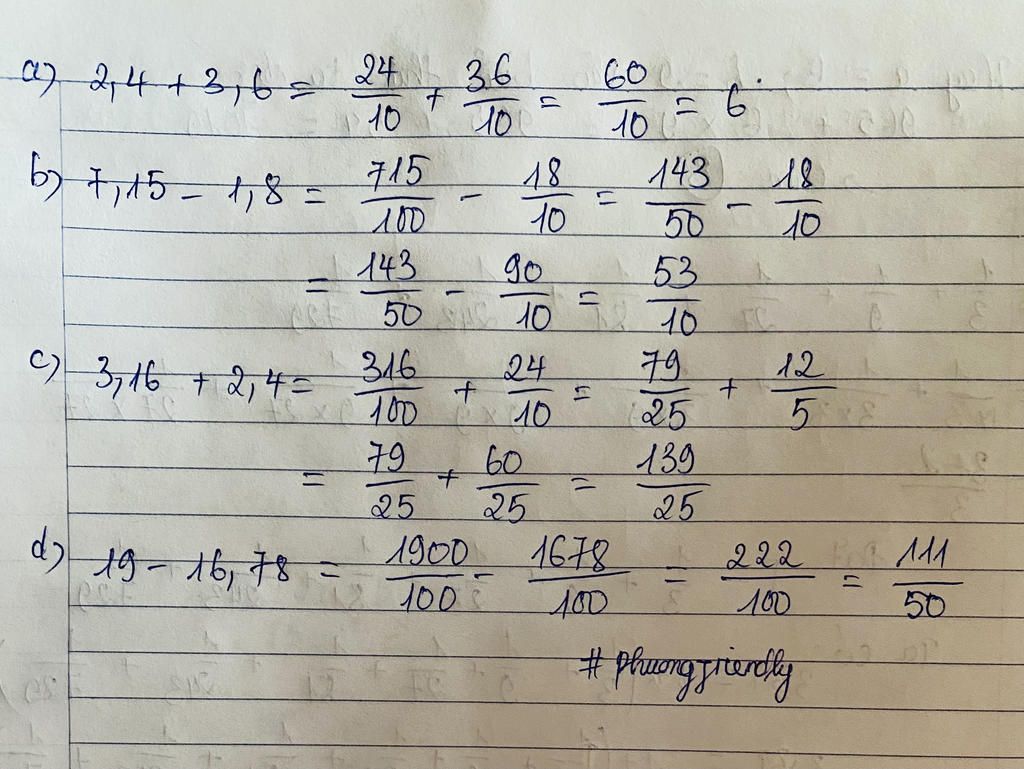 a) 2,4 + 3,6 = 24/10 + 36/10 = 60/10 = 6.
b) 7,15 - 1,8 = 715/100 - 18/10 = 143/50 - 18/10
= 143/50 - 90/10 = 53/10
c) 3,16 + 2,4 = 316/100 + 24/10 = 79/25 + 12/5
= 79/25 + 60/25 = 139/25
d) 19 - 16,78 = 1900/100 - 1678/100 = 222/100 = 111/50
# phuongfriendly